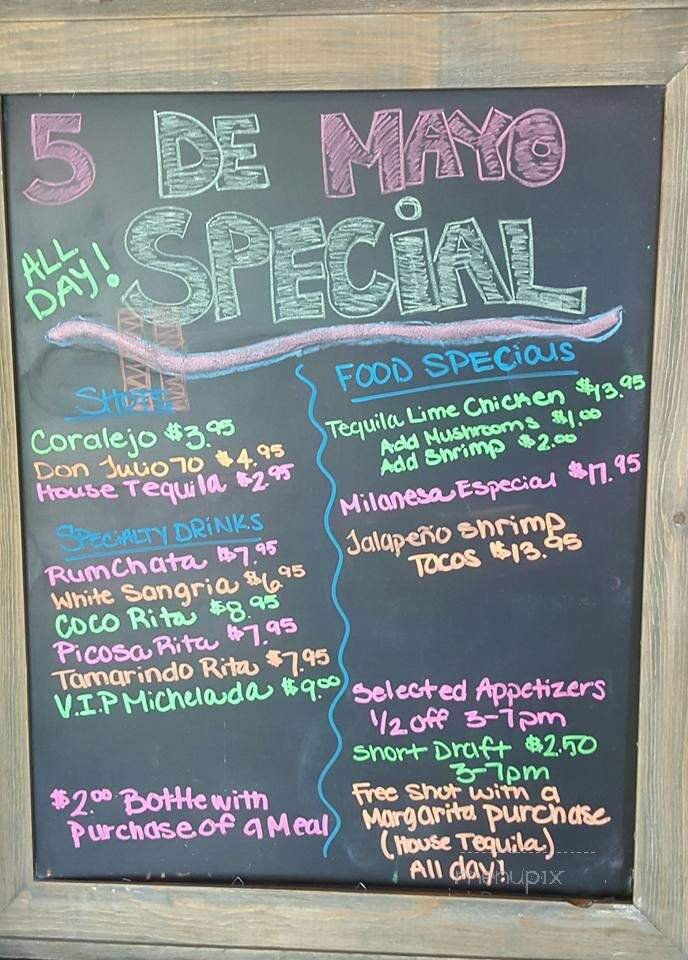 5 DE MAYO
SPECIAL
ALL
DAY!
SHOTS
Coralejo $3.95
Don Julio 70 $4.95
House Tequila $2.95
SPECIALTY DRINKS
RumChata $7.95
White Sangria $6.95
Coco Rita $8.95
Picosa Rita $7.95
Tamarindo Rita $7.95
V.I.P Michelada $9.00
$2.00 Bottle with
Purchase of a Meal
FOOD SPECIALS
Tequila Lime Chicken $13.95
Add Mushrooms $1.00
Add Shrimp $2.00
Milanesa Especial $17.95
Jalapeño Shrimp
Tacos $13.95
Selected Appetizers
1/2 off 3-7pm
Short Draft $2.50
3-7pm
Free Shot with a
Margarita purchase
(House Tequila)
All day!
menupix